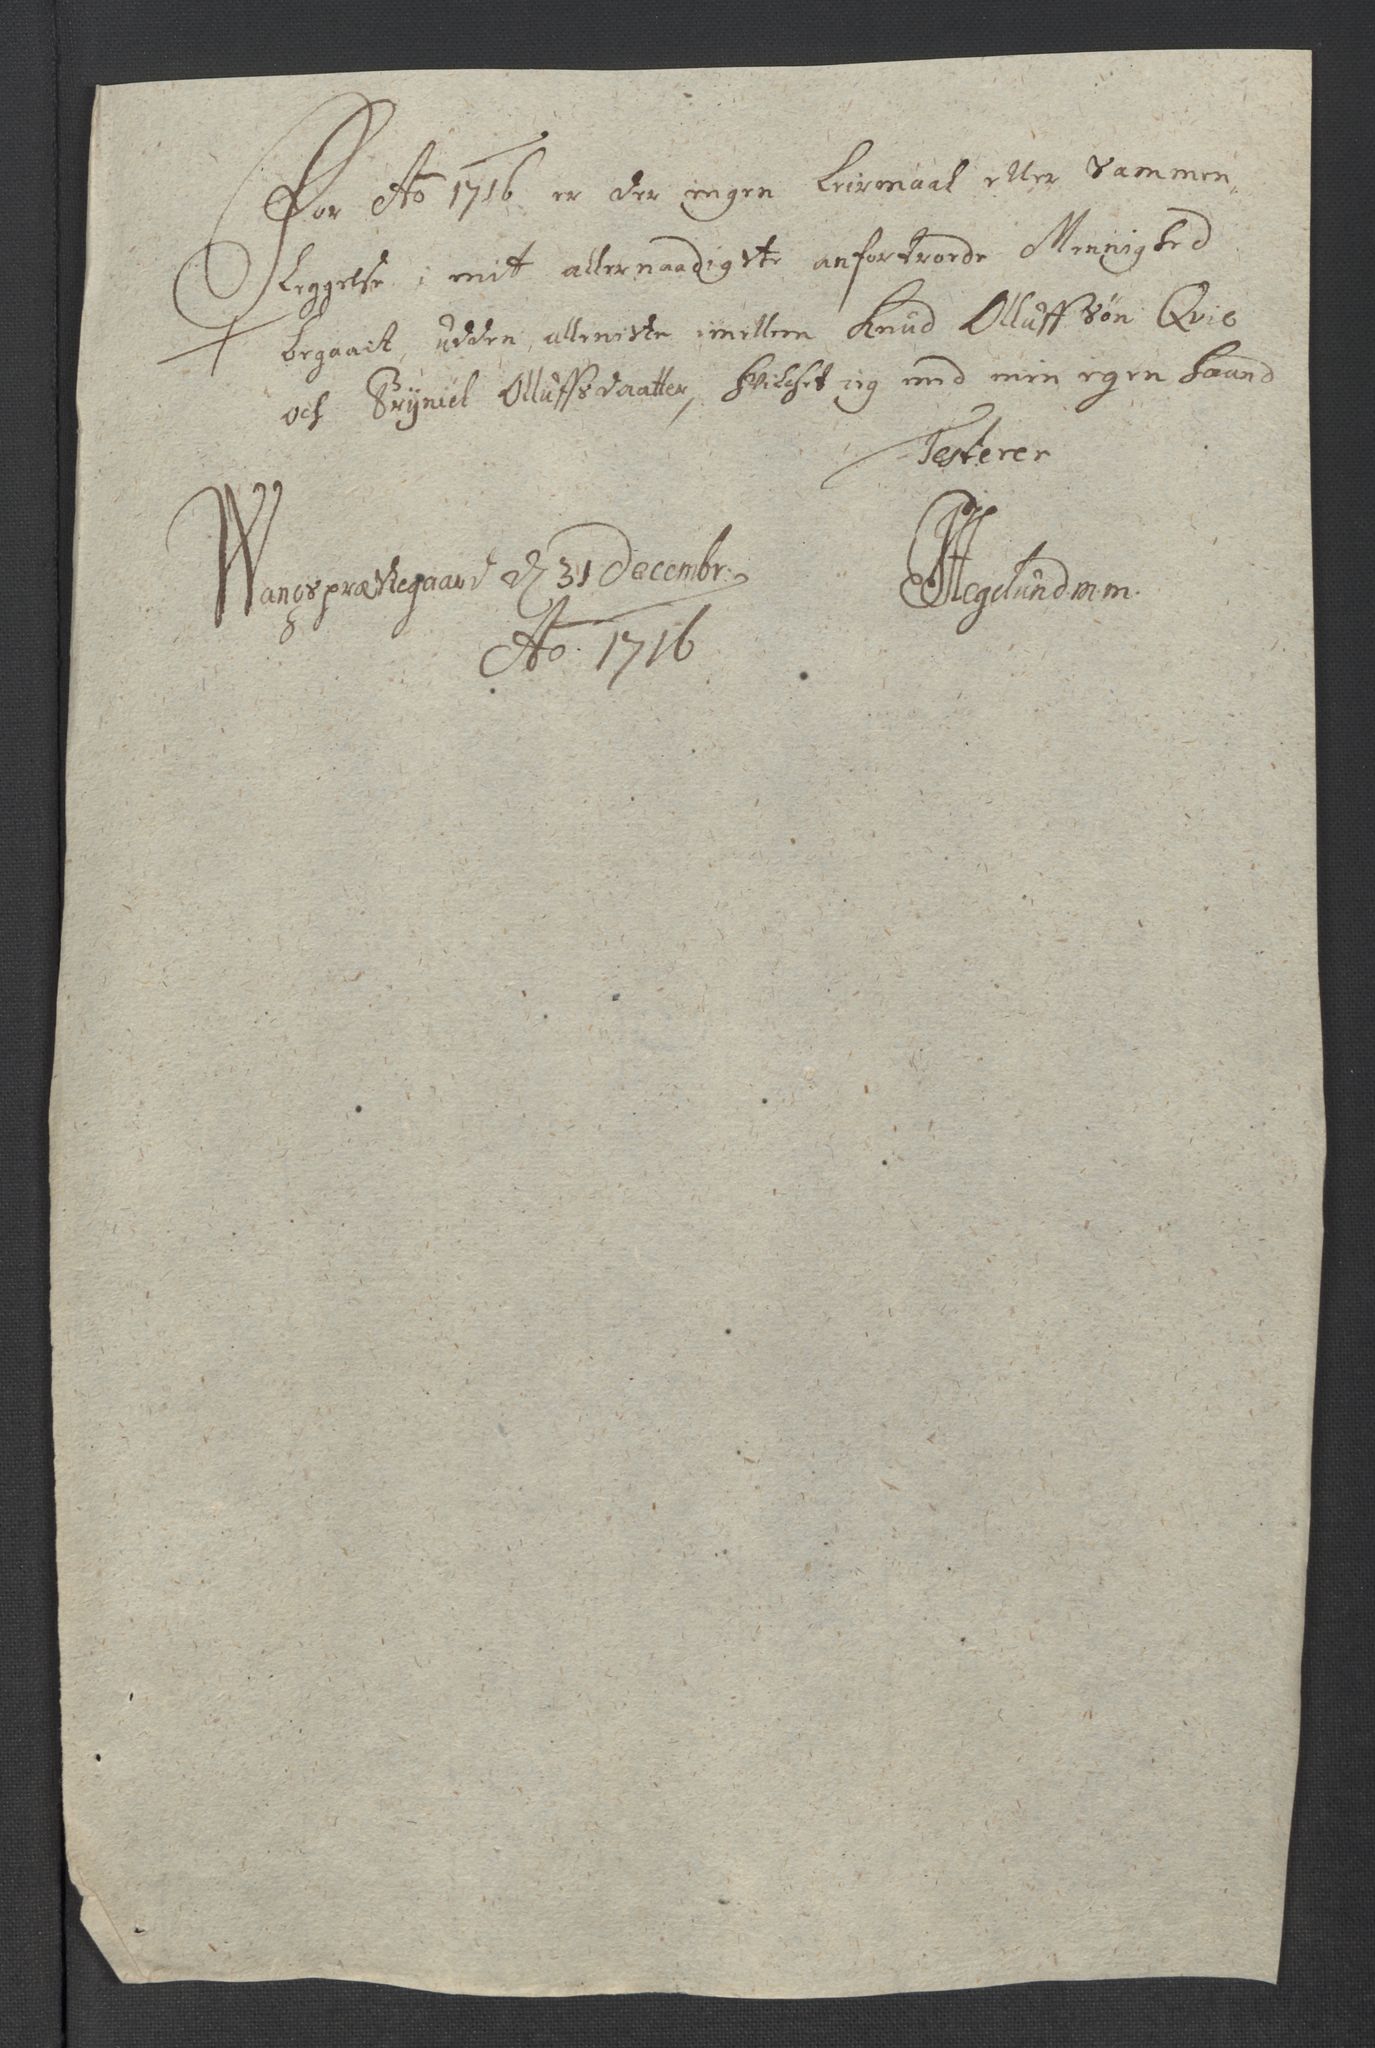 For Ao 1716 er der ingen Leirmaal eller Sammen
Leggelse i mit allernaadigste anfortroede Menighed
begaait, udden alleniste imellem Knud Olluffsøn Qvie
och Bryniel Olluffsdaatter, hvilchet ieg med min egen haand
Testerer
Wangs præstegaard d 31 Decembr:
Ao. 1716
Hegelund m.m.